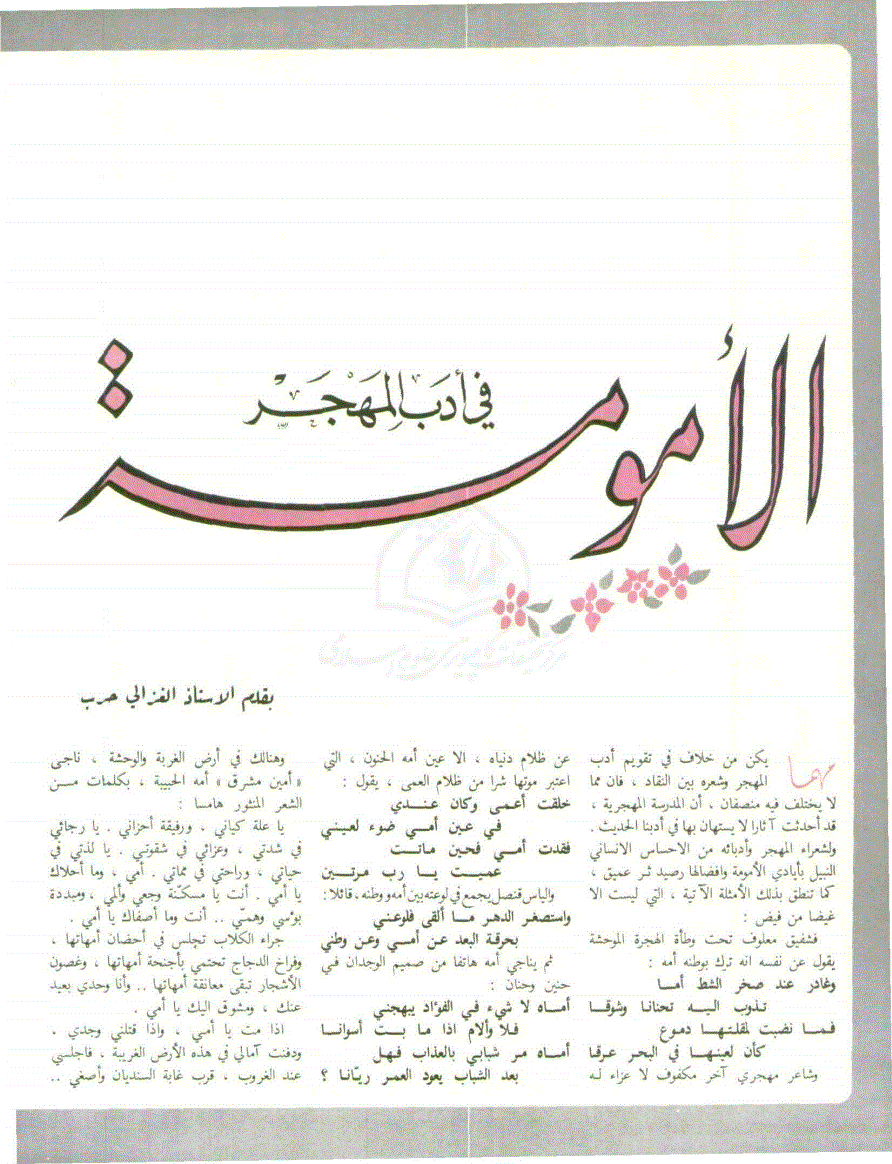 الأمومة
في أدب المهجر
بقلم الاستاذ الغزالي حرب
مهما يكن من خلاف في تقويم أدب
المهجر وشعره بين النقاد ، فان مما
لا يختلف فيه منصفان ، أن المدرسة المهجرية ،
قد أحدثت آثارا لا يستهان بها في أدبنا الحديث .
ولشعراء المهجر وأدبائه من الاحساس الانساني
النبيل بأيادي الأمومة وافضالها رصيد ثر عميق ،
كما تنطق بذلك الأمثلة الآتية ، التي ليست الا
غيضا من فيض :
فشفيق معلوف تحت وطأة الهجرة الموحشة
يقول عن نفسه انه ترك بوطنه أمه :
وغادر عند صخر الشط أمـا
تـذوب اليـه تحنانـا وشوقـا
فمـا نضبت لمقلتهـا دمـوع
كأن لعينهـا في البحر عرقـا
وشاعر مهجري آخر مكفوف لا عزاء لـه
عن ظلام دنياه ، الا عين أمه الحنون ، التي
اعتبر موتها شرا من ظلام العمى ، يقول :
خلقت أعمـى وكان عنـدي
فـي عين أمـي ضوء لعيني
فقدت أمـي فحين ماتـت
عميـت يـا رب مرتـين
والياس قنصل يجمع في لوعته بين أمه ووطنه ، قائلا :
واستصغر الدهر مـا ألقى فلوعني
بحرقة البعد عـن أمـي وعن وطني
ثم يناجي أمه هاتفا من صميم الوجدان في
حنين وحنان :
أمـاه لا شيء فـي الفؤاد يبهجني
فـلا وألام اذا مـا بـت أسوانـا
أمـاه مـر شبابي بالعذاب فهـل
بعد الشباب يعود العمـر ريـانا ؟
وهنالك في أرض الغربة والوحشة ، ناجـى
« أمين مشرق » أمه الحبيبة ، بكلمات مـن
الشعر المنثور هامسا :
يا علة كياني ، ورفيقة أحزاني . يا رجائي
في شدتي ، وعزائي في شقوتي . يا لذتي في
حياتي ، وراحتي في مماتي . أمي ، وما أحلاك
يا أمي . أنت يا مسكنة وجعي وألمي ، ومبددة
بؤسي وهمي .. أنت وما أصفاك يا أمي .
جراء الكلاب تجلس في أحضان أمهاتها ،
وفراخ الدجاج تحتمي بأجنحة أمهاتها ، وغصون
الأشجار تبقى معانقة أمهاتها .. وأنا وحدي بعيد
عنك ، ومشوق اليك يا أمي .
اذا مت يا أمـي ، واذا قتلني وجدي ،
ودفنت آمالي في هذه الأرض الغريبة ، فاجلسي
عند الغروب ، قرب غابة السنديان وأصغي ..